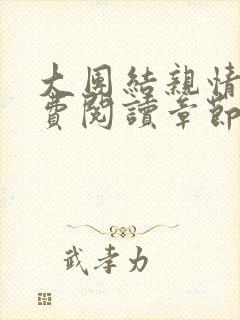 大團結親情
費閱讀章節
武孝力